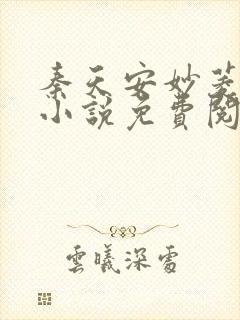 秦天安妙菱
小說免費閱
雲曦深處